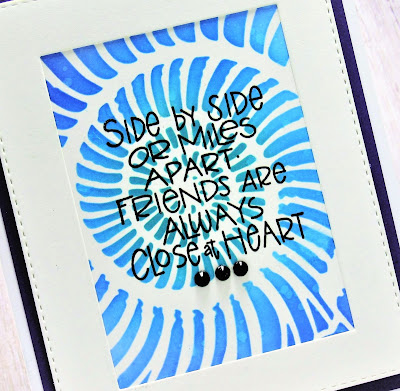 SIDE by SIDE
OR MILES
APART.
FRIENDS ARE
ALWAYS
CLOSE at HEART